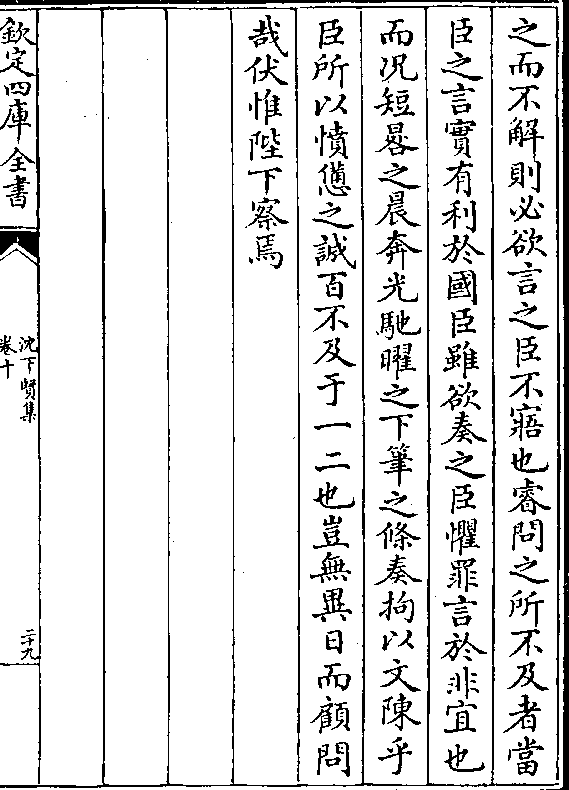 之而不解則必欲言之臣不寤也睿問之所不及者當
臣之言實有利於國臣雖欲奏之臣懼罪言於非宜也
而况短晷之晨奔光馳曜之下筆之條奏拘以文陳乎
臣所以憤懣之誠百不及于一二也豈無異日而顧問
哉伏惟陛下察焉
欽定四庫全書
沈下賢集
卷十
二十九